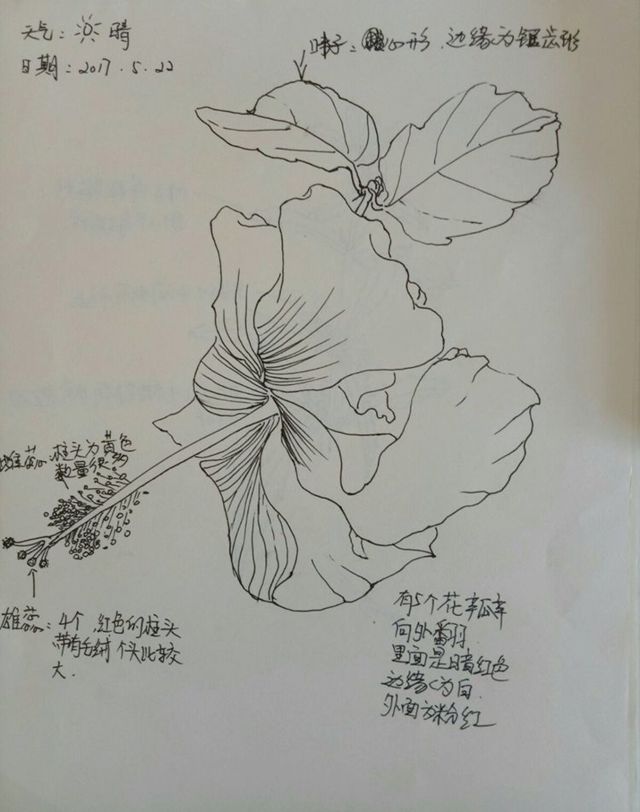 天气：晴
日期：2017.5.22
叶子：山形，边缘为锯齿形
雌蕊：柱头为黄色
数量很多
雄蕊：4个 红色的柱头
带有毛绒 个头比较
大.
有5个花瓣
向外翻
里面是暗红色
边缘为白.
外面为粉红